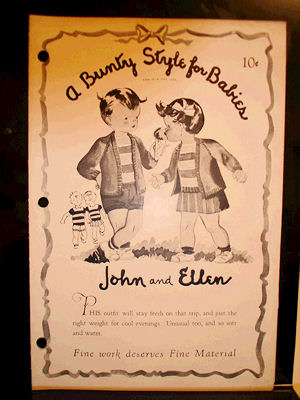 A Bunty Style for Babies
10¢
John and Ellen
THIS outfit will stay fresh on that trip, and just the
right weight for cool evenings. Unusual too, and so soft
and warm.
Fine work deserves Fine Material